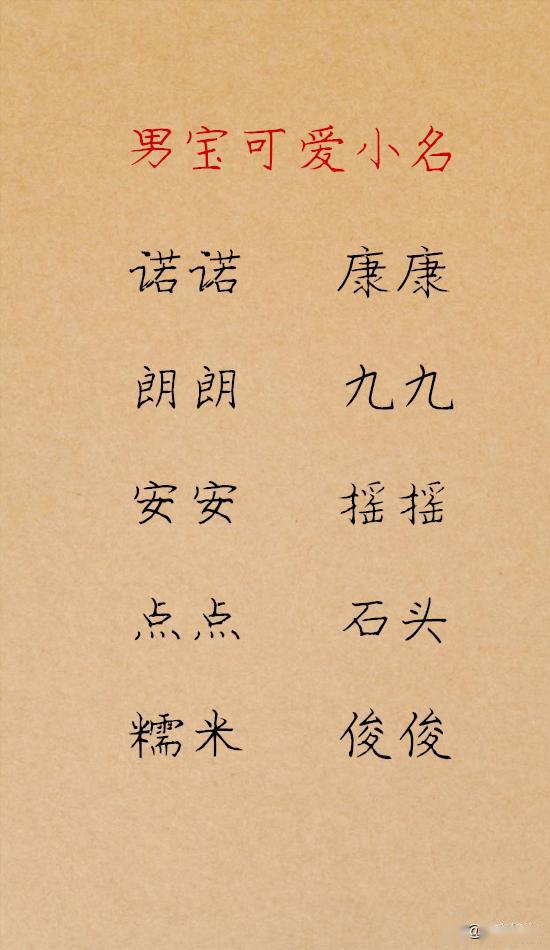 男宝可爱小名
诺诺 康康
朗朗 九九
安安 摇摇
点点 石头
糯米 俊俊
@